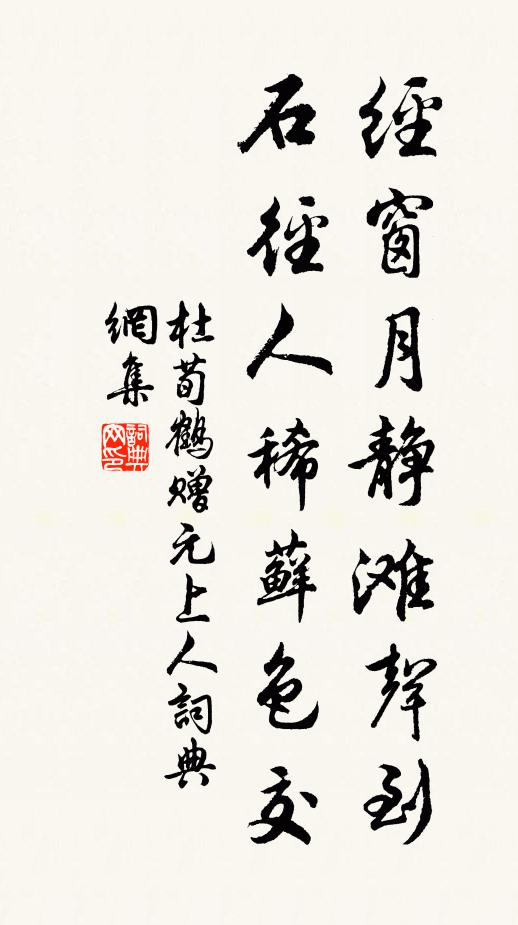 經窗月静滩聲到
石徑人稀蘚色交
杜荀鶴赠元上人詞典
網集
詞典
网印